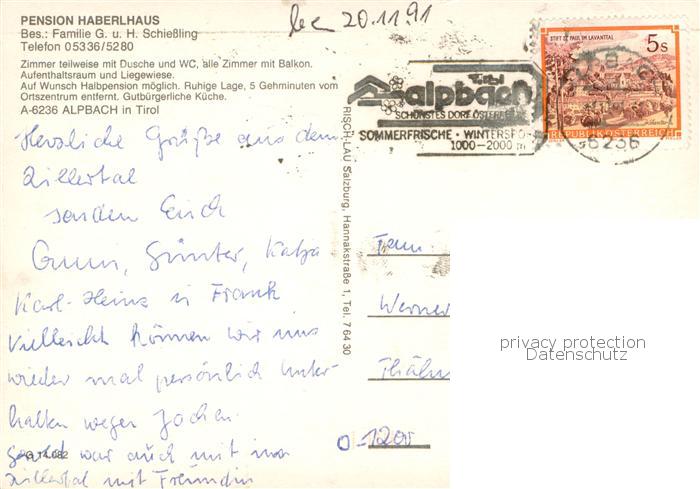 PENSION HABERLHAUS
Bes.: Familie G. u. H. Schießling
Telefon 05336/5280
Zimmer teilweise mit Dusche und WC, alle Zimmer mit Balkon.
Aufenthaltsraum und Liegewiese.
Auf Wunsch Halbpension möglich. Ruhige Lage, 5 Gehminuten vom
Ortszentrum entfernt. Gutbürgerliche Küche.
A-6236 ALPBACH in Tirol
20.11.91
Tirol
alpbach
SCHÖNSTES DORF ÖSTERREICHS
SOMMERFRISCHE · WINTERSPO
1000–2000 m
STIFT ST. PAUL IM LAVANTTAL
5s
REPUBLIK ÖSTERREICH
6236
Herzliche Grüße aus dem
Zillertal
senden Euch
Gunni, Günter, Katja
Karl-Heinz u Frank
Vielleicht können wir uns
wieder mal persönlich unter-
halten wegen Jochen.
war auch mit im
Zillertal mit Freundin
G 14082
RISCH-LAU Salzburg, Hannakstraße 1, Tel. 7 64 30
Fam.
Werner
Thälm
O-1200
privacy protection
Datenschutz